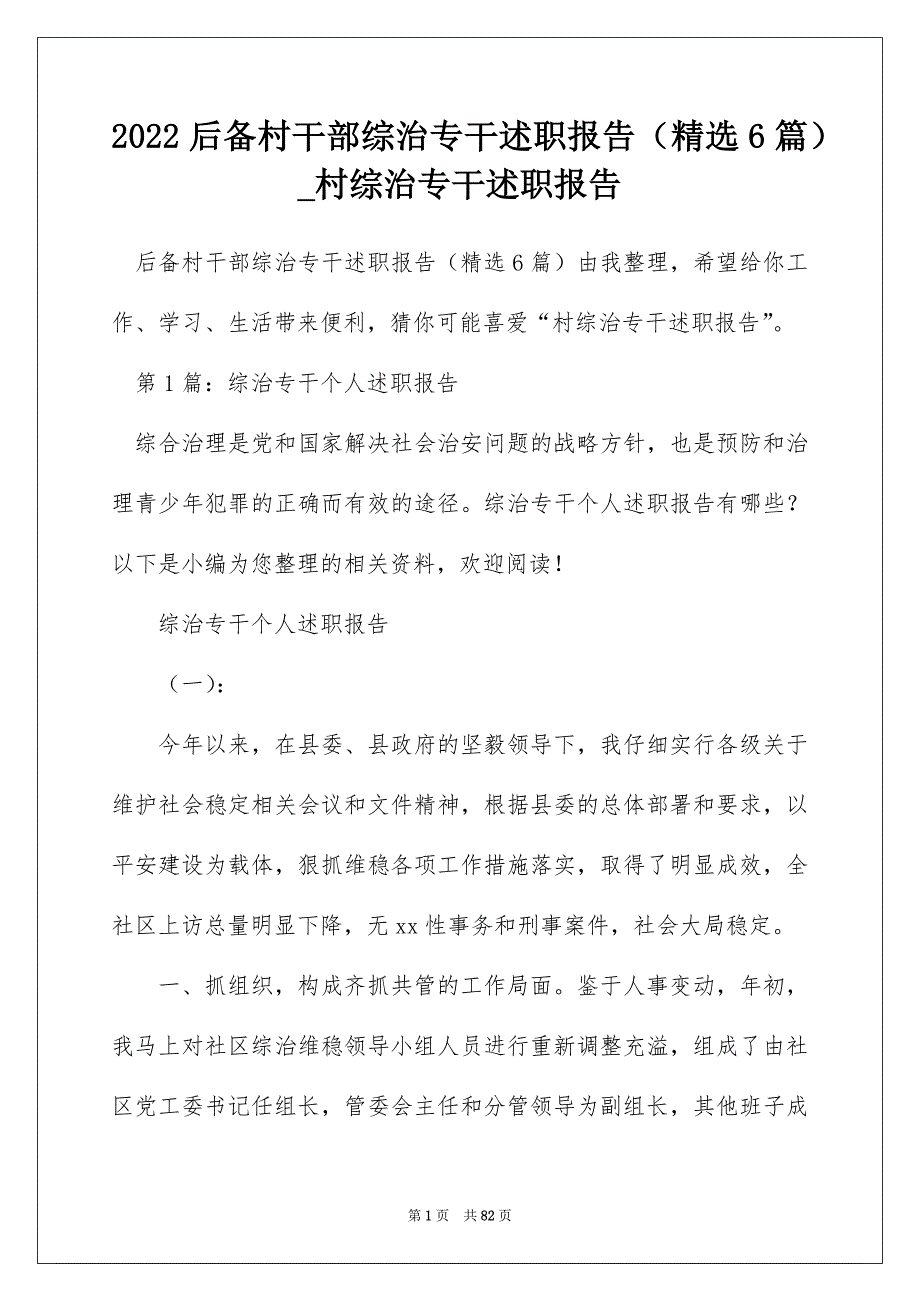 2022后备村干部综治专干述职报告（精选6篇）
_村综治专干述职报告
后备村干部综治专干述职报告（精选6篇）由我整理，希望给你工
作、学习、生活带来便利，猜你可能喜爱“村综治专干述职报告”。
第1篇：综治专干个人述职报告
综合治理是党和国家解决社会治安问题的战略方针，也是预防和治
理青少年犯罪的正确而有效的途径。综治专干个人述职报告有哪些？
以下是小编为您整理的相关资料，欢迎阅读！
综治专干个人述职报告
（一）：
今年以来，在县委、县政府的坚毅领导下，我仔细实行各级关于
维护社会稳定相关会议和文件精神，根据县委的总体部署和要求，以
平安建设为载体，狠抓维稳各项工作措施落实，取得了明显成效，全
社区上访总量明显下降，无xx性事务和刑事案件，社会大局稳定。
一、抓组织，构成齐抓共管的工作局面。鉴于人事变动，年初，
我马上对社区综治维稳领导小组人员进行重新调整充溢，组成了由社
区党工委书记任组长，管委会主任和分管领导为副组长，其他班子成
第1页 共82页